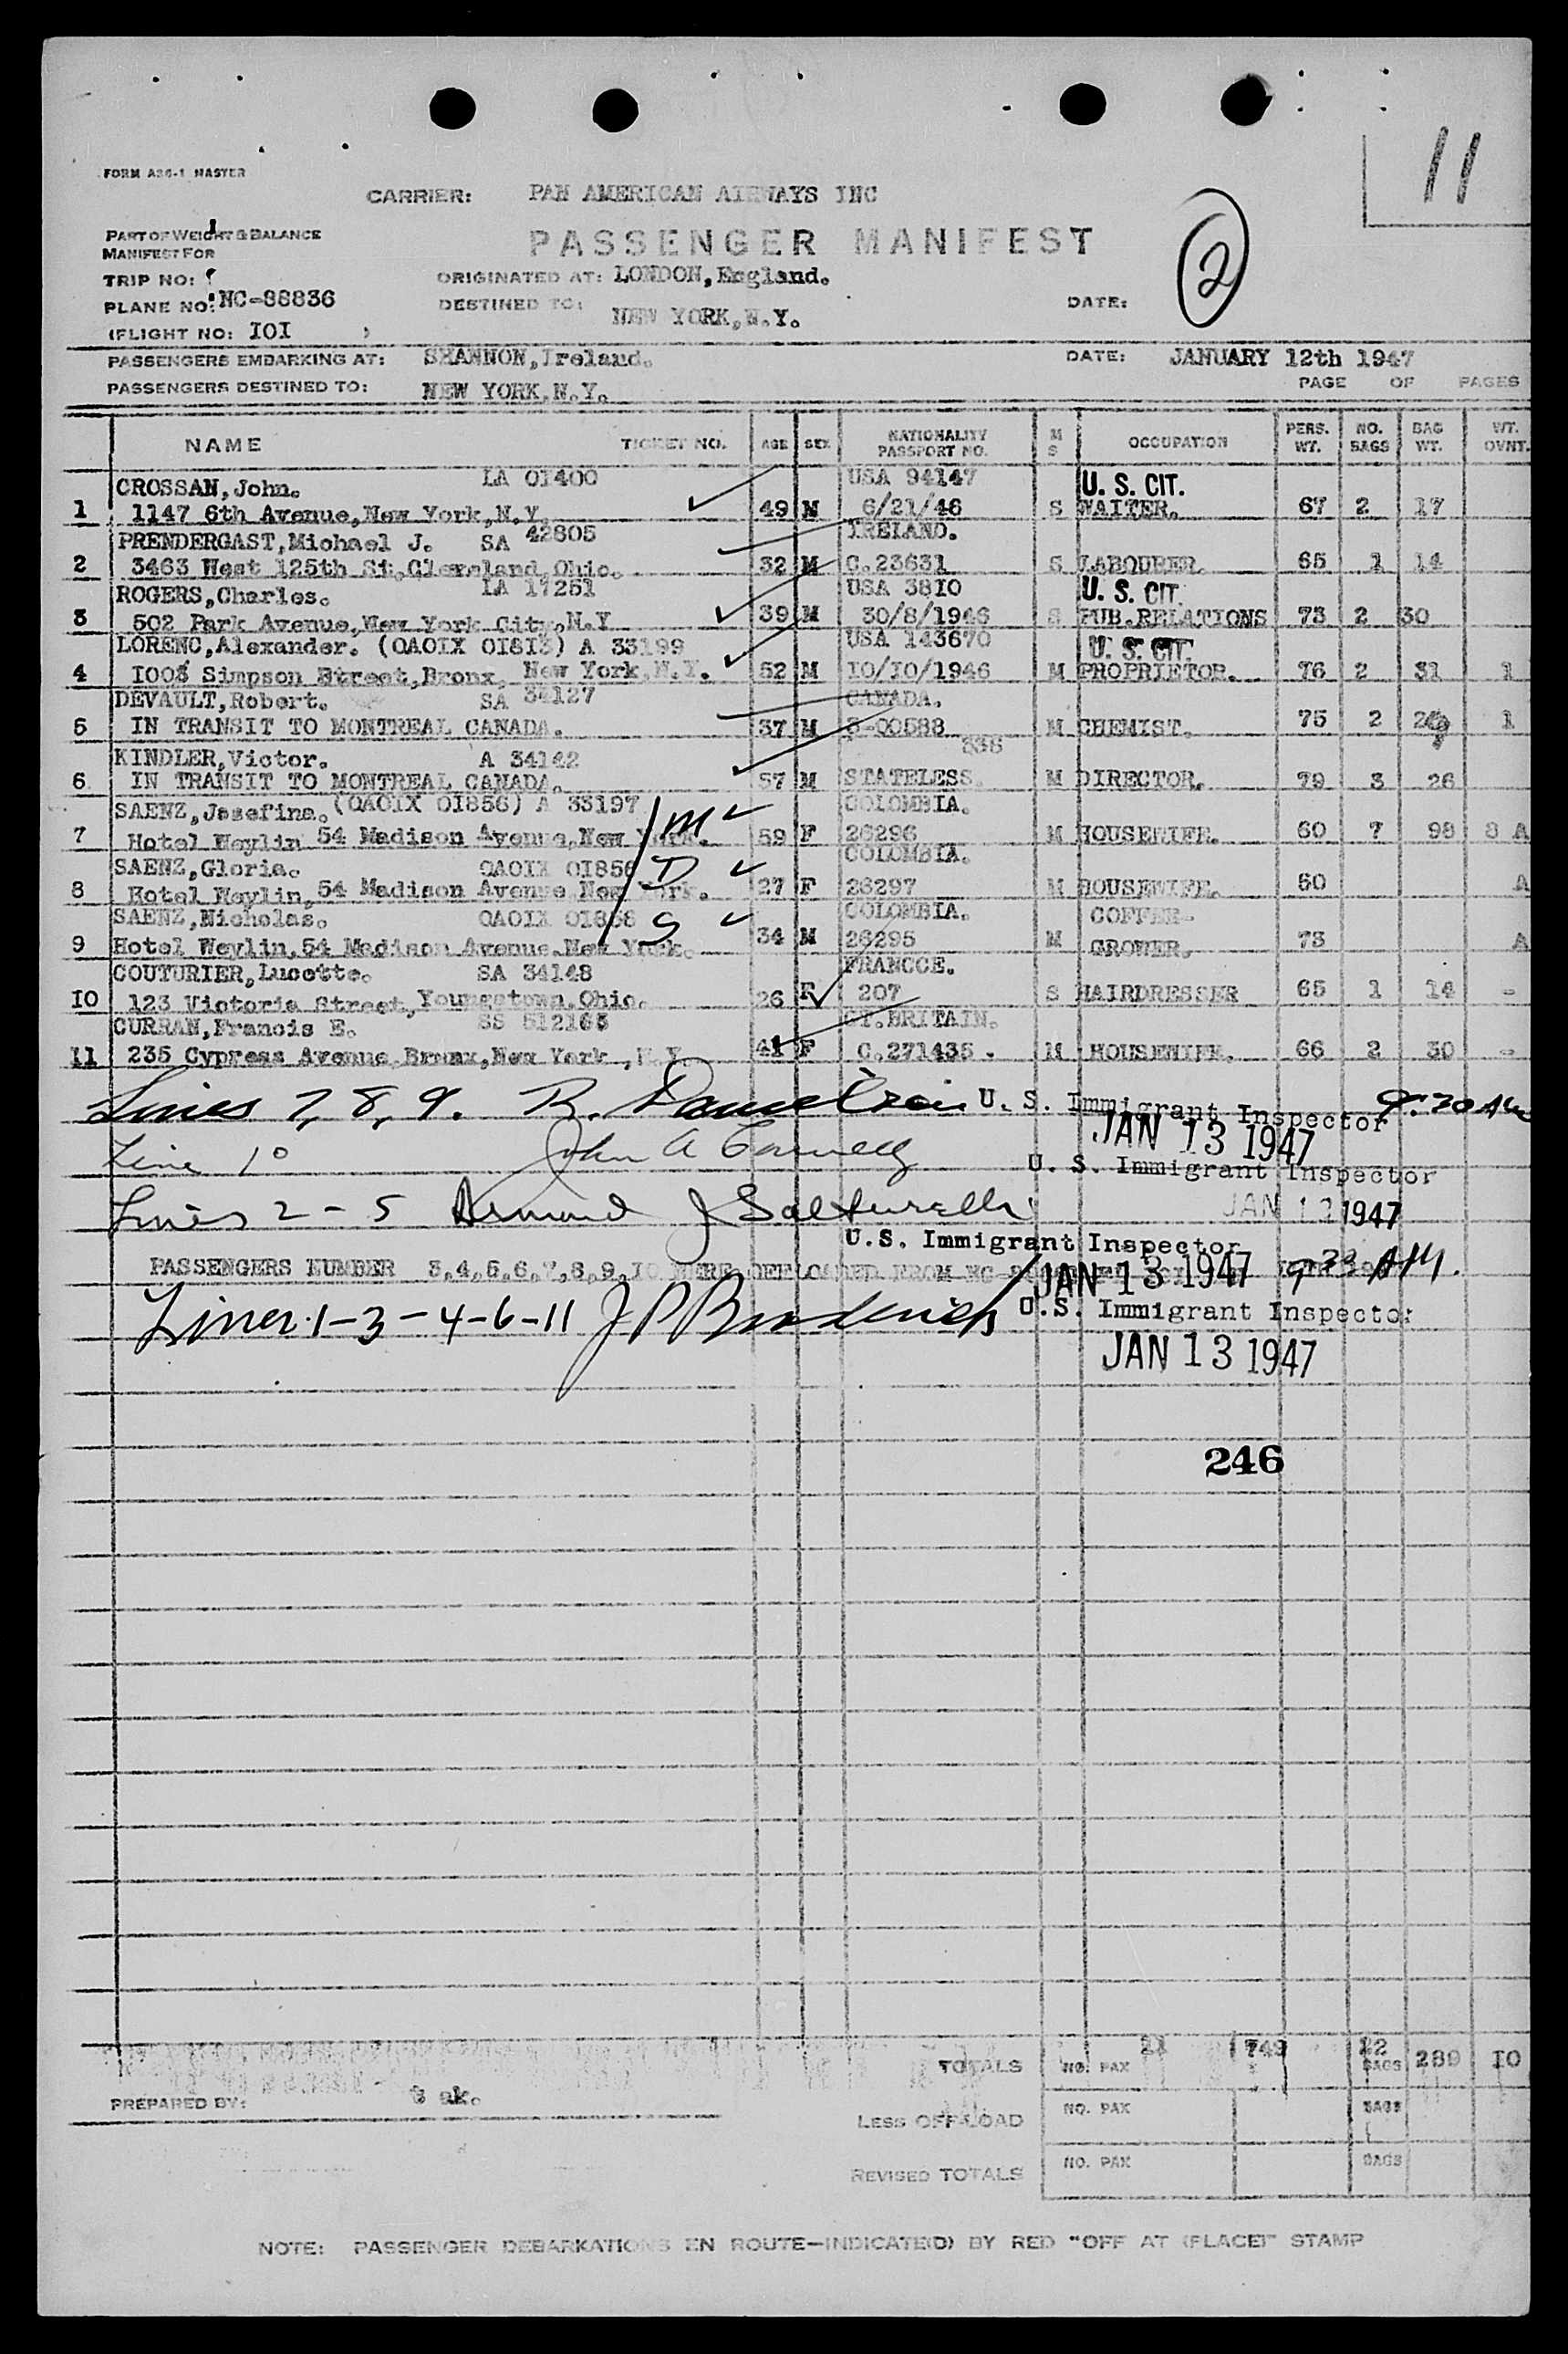 11
FORM A26-1 MASTER
CARRIER: PAN AMERICAN AIRWAYS INC
PART OF WEIGHT & BALANCE
MANIFEST FOR
PASSENGER MANIFEST
2
TRIP NO:
ORIGINATED AT: LONDON, England.
PLANE NO: NC-88836
DESTINED TO: NEW YORK, N.Y.
DATE:
(FLIGHT NO: IOI )
PASSENGERS EMBARKING AT: SHANNON, Ireland.
DATE: JANUARY 12th 1947
PASSENGERS DESTINED TO: NEW YORK, N.Y.
PAGE OF PAGES
NAME TICKET NO. AGE SEX NATIONALITY PASSPORT NO. M S OCCUPATION PERS. WT. NO. BAGS BAG WT. WT. OVNT.
CROSSAN, John. LA OI400 USA 94147 U. S. CIT.
1 1147 6th Avenue, New York, N.Y. 49 M 6/21/46 S WAITER. 67 2 17
PRENDERGAST, Michael J. SA 42805 IRELAND.
2 3463 West 125th St, Cleveland, Ohio. 32 M C.23631 S LABOURER. 65 1 14
ROGERS, Charles. LA 17251 USA 38IO U. S. CIT.
3 502 Park Avenue, New York City, N.Y 39 M 30/8/1946 S PUB.RELATIONS 73 2 30
LORENC, Alexander. (OAOIX OI8I3) A 33199 USA 143670 U. S. CIT.
4 Simpson Street, Bronx, New York, N.Y. 52 M IO/IO/1946 M PROPRIETOR. 76 2 31 1
DEVAULT, Robert. SA 34127 CANADA.
5 IN TRANSIT TO MONTREAL CANADA. 37 M 3-00588 M CHEMIST. 75 2 1
338
KINDLER, Victor. A 34142
6 IN TRANSIT TO MONTREAL CANADA. 57 M STATELESS. M DIRECTOR. 79 3 26
SAENZ, Josefina. (OAOIX OI856) A 33197 M COLOMBIA.
7 Hotel Weylin 54 Madison Avenue, New York. 59 F 26296 M HOUSEWIFE. 60 7 98 8 A
SAENZ, Gloria. OAOIX OI856 D COLOMBIA.
8 Hotel Weylin, 54 Madison Avenue, New York. 27 F 26297 M HOUSEWIFE. 50 A
SAENZ, Nicholas. OAOIX S COLOMBIA. COFFEE-
9 Hotel Weylin, 54 Madison Avenue, New York. 34 M 26295 M GROWER. 73 A
COUTURIER, Lucette. SA 34148 FRANCCE.
IO 123 Victoria Street, Youngstown, Ohio. 26 F 207 S HAIRDRESSER 65 1 14 -
CURRAN, Francis E. SS 512165 GT.BRITAIN.
II 235 Cypress Avenue Bronx, New York, N.Y. 41 F C.271435. M HOUSEWIFE. 66 2 30 -
Lines 7, 8, 9. R. U. S. Immigrant Inspector 9:20 AM
JAN 13 1947
Line 10 John A U. S. Immigrant Inspector
JAN 13 1947
Lines 2 - 5 Armand J Salturelli
U.S. Immigrant Inspector
PASSENGERS NUMBER 3,4,5,6,7,8,9,IO WERE OFFLOADED FROM
JAN 13 1947 AM.
Lines 1-3-4-6-11 J P Broderick U.S. Immigrant Inspector
JAN 13 1947
246
TOTALS NO. PAX 11 749 22 BAGS 289 IO
PREPARED BY: ak.
LESS OFF-LOAD NO. PAX BAGS
REVISED TOTALS NO. PAX BAGS
NOTE: PASSENGER DEBARKATIONS EN ROUTE—INDICATE(D) BY RED "OFF AT (PLACE)" STAMP